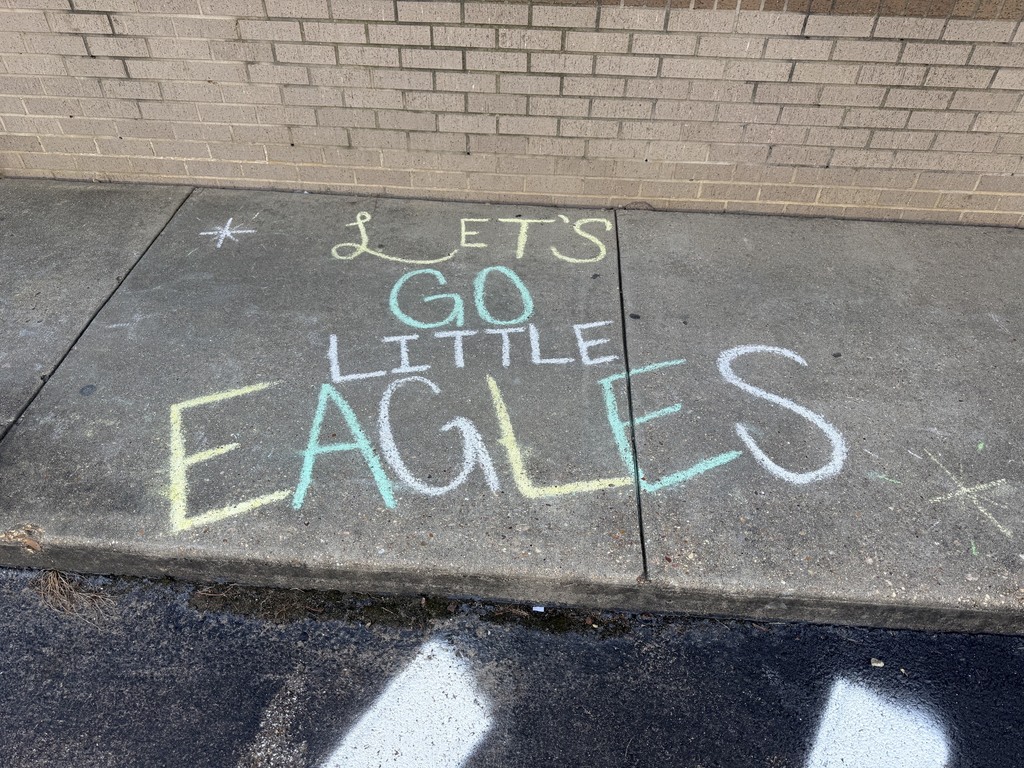 LET'S
GO
LITTLE
EAGLES